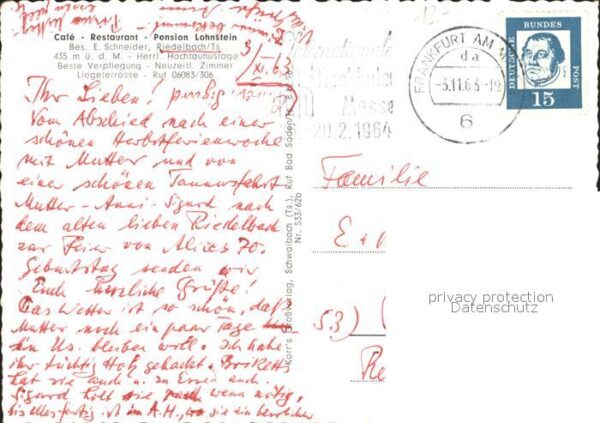 Café - Restaurant - Pension Lohnstein
Bes. E. Schneider, Riedelbach/Ts.
435 m ü. d. M. - Herrl. Hochtaunuslage
Beste Verpflegung - Neuzeitl. Zimmer
Liegeterrasse - Ruf 06083/306
3/
XI. 63
Ihr Lieben!
Vom Abschied nach einer
schönen Herbstferienwoche
mit Mutter und von
einer schönen Taunusfahrt
Mutter - Anni - Sigurd nach
dem alten lieben Riedelbach
zur Feier von Alices 70.
Geburtstag senden wir
Euch herzliche Grüße!
Das Wetter ist so schön, daß
Mutter noch ein paar Tage
in Us. bleiben will. Ich habe
ihr tüchtig Holz gehackt. Briketts
hat sie auch u. zu Essen auch.
Sigurd holt sie wenn nötig,
bis alles fertig ist im A.H., wo sie ein herrliches
Karr's Großverlag, Schwalbach (Ts.), Ruf Bad Soden/Ts.
Nr. 533/62b
Internationale
Messe
-20.2.1964
FRANKFURT AM MAIN
da
-3.11.63-19
6
DEUTSCHE
BUNDES
POST
15
Familie
E
53)
Re
privacy protection
Datenschutz